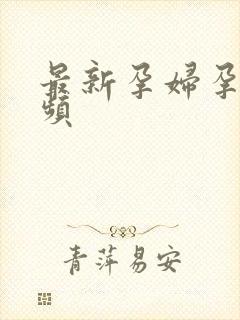 最新孕婦孕
頻
青萍易安